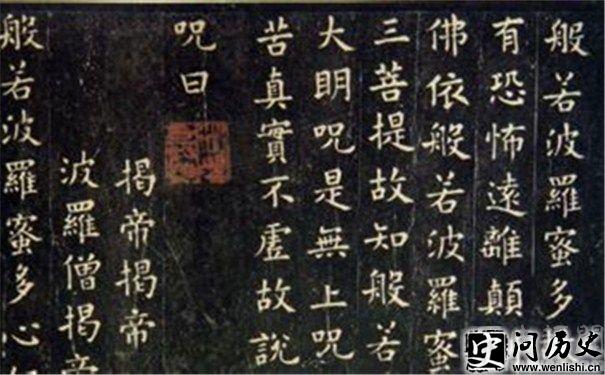 般若波羅蜜多
有恐怖遠離顛
佛依般若波羅蜜
三菩提故知般若
大明呪是無上呪
苦真實不虛故說
呪曰
揭帝揭帝
波羅僧揭帝
般若波羅蜜多心
问历史
www.wenlishi.cn